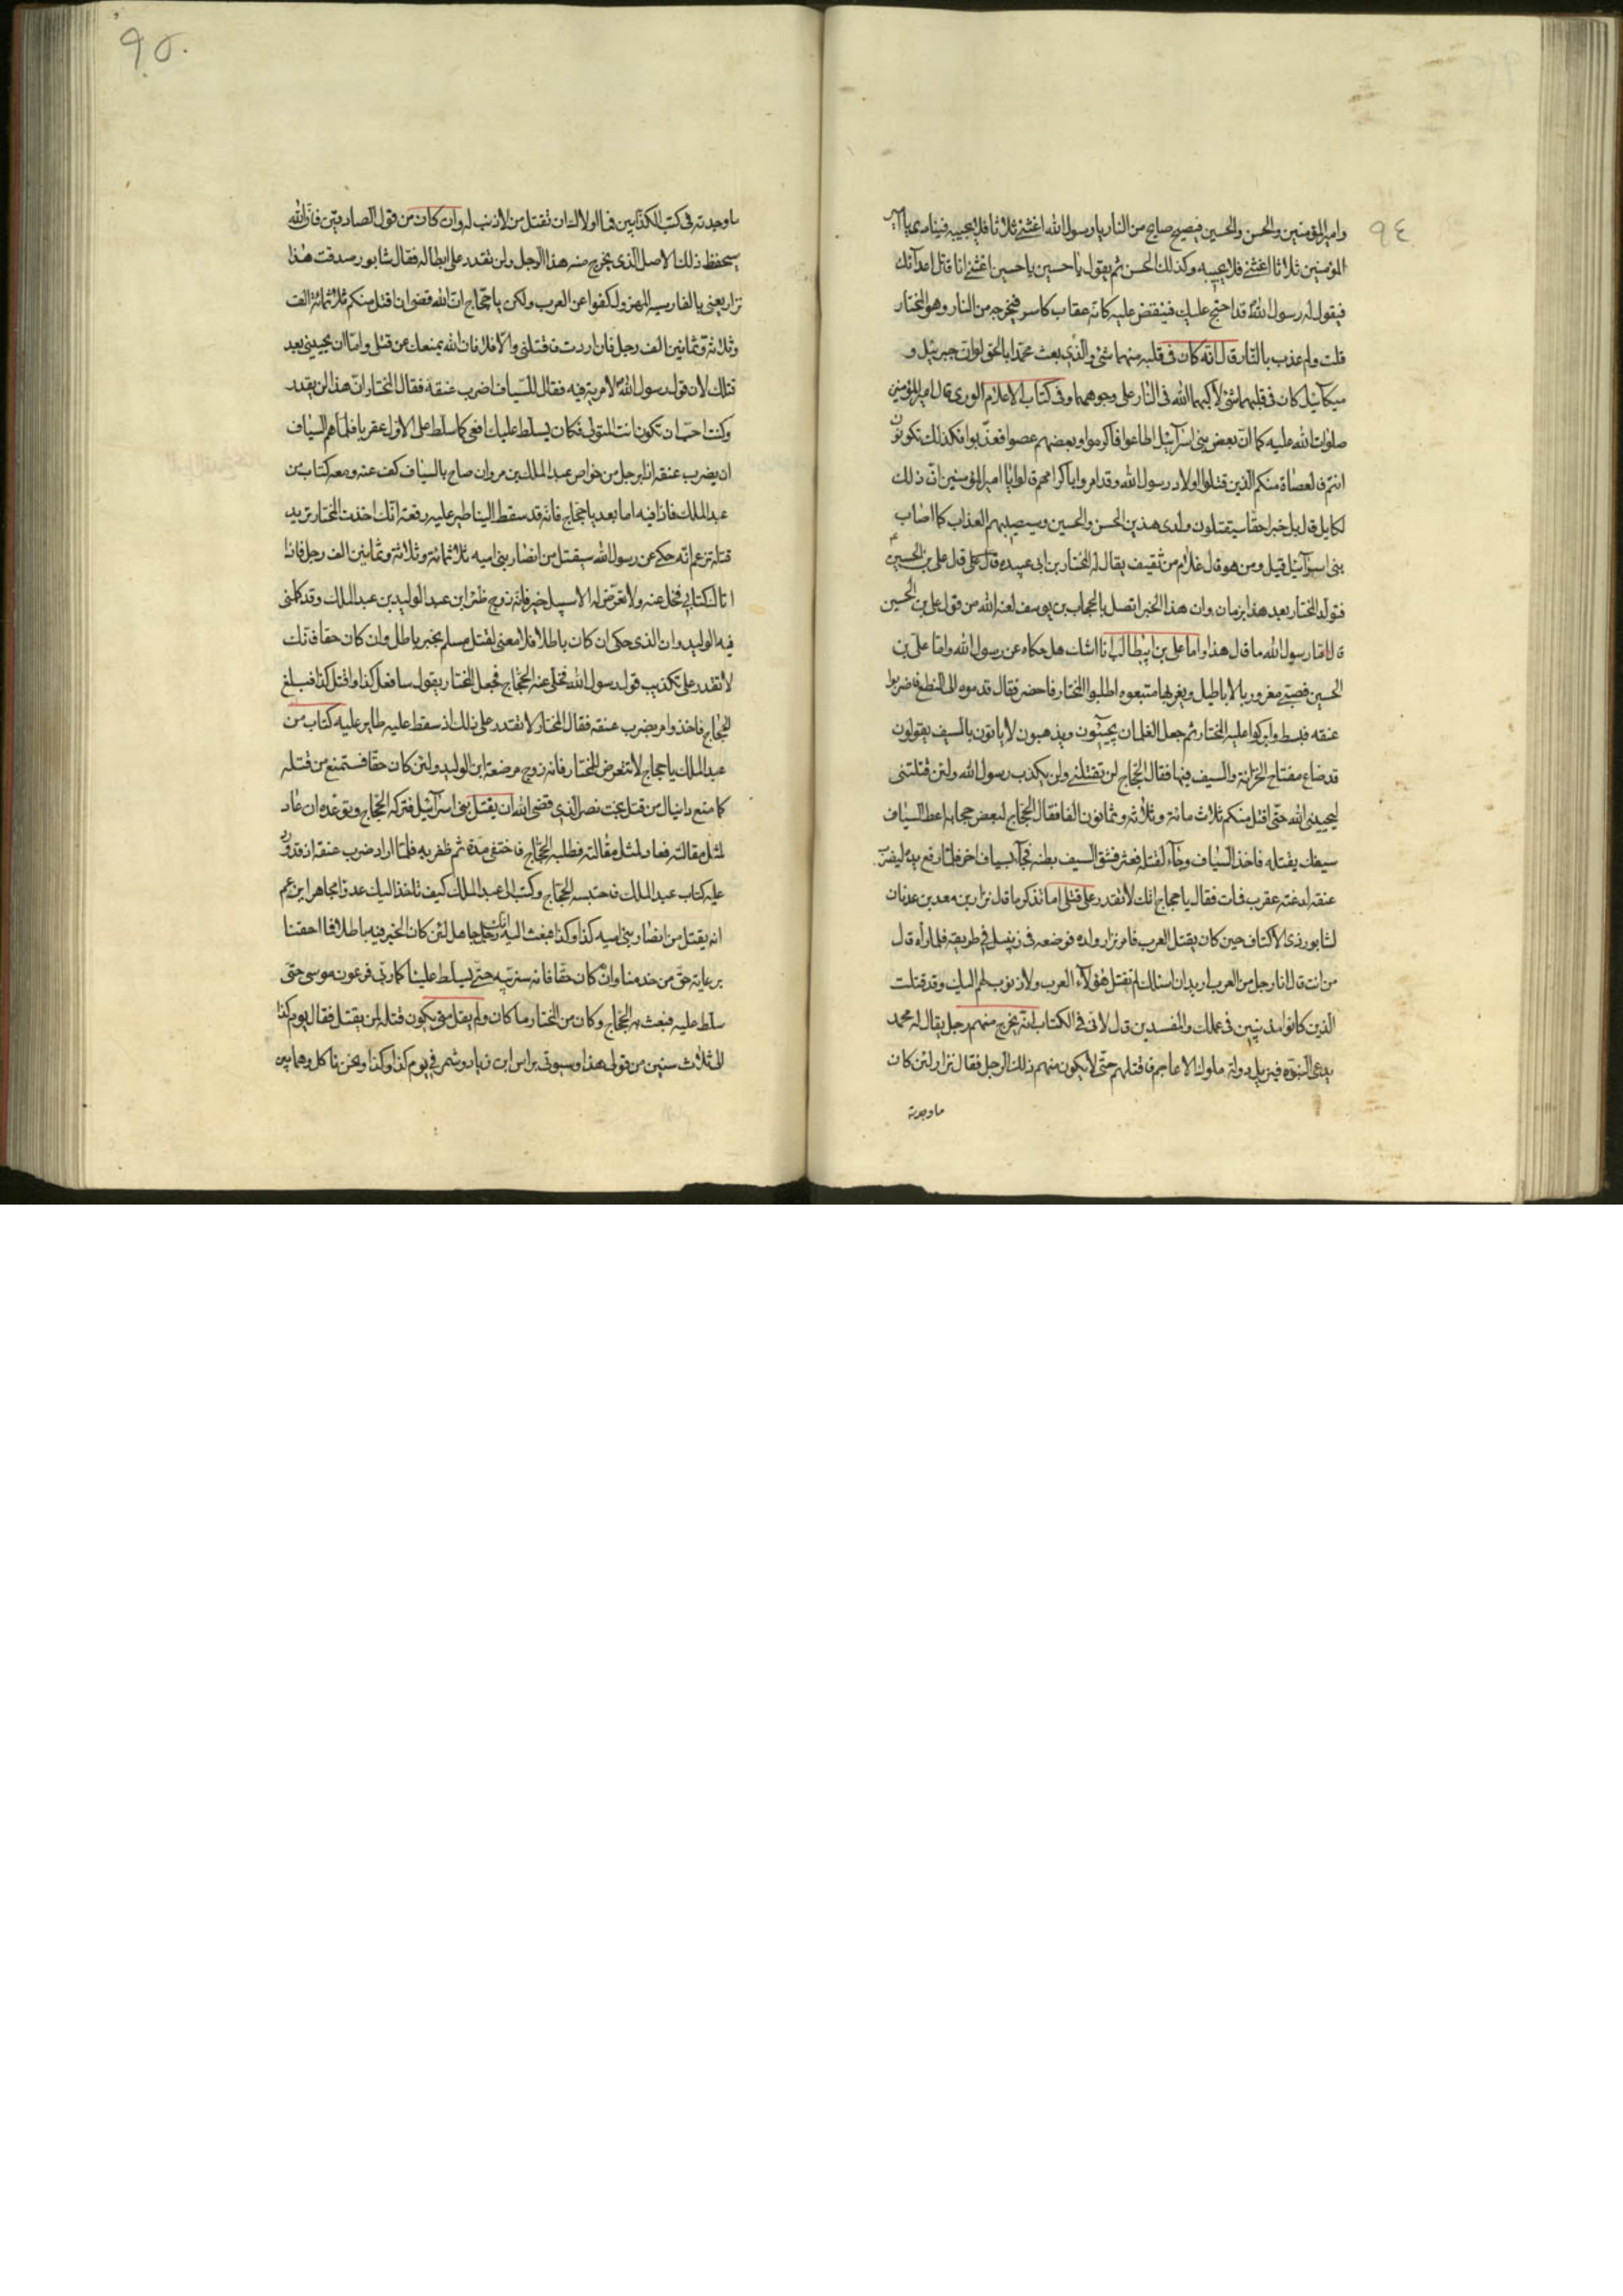 ٩٤
وامیر المؤمنین والحسن والحسین فیصیح صایح من النار یا رسول الله اغثنی ثلاثا فلا یجیبه فینادی یا امیر
المؤمنین ثلاثا اغثنی فلا یجیبه وکذلک الحسن ثم یقول یا حسین یا حسین اغثنی انا قاتل اعدآئک
فیقول له رسول الله قد احتج علیک فینقض علیه کانه عقاب کاسر فیخرجه من النار وهو المختار
قلت ولم عذب بالنار قال انه کان فی قلبه منهما شئ والذی بعث محمدا بالحق لو ان جبرئیل و
میکآئیل کان فی قلبیهما شئ لاکبهما الله فی النار علی وجوههما وفی کتاب الاعلام الوری قال امیر المؤمنین
صلوات الله علیه کما ان بعض بنی اسرآئیل اطاعوا فاکرموا وبعضهم عصوا فعذبوا فکذلک تکونون
انتم فالعصاة منکم الذین قتلوا اولاد رسول الله وقد امروا باکرامهم قالوا یا امیر المؤمنین ان ذلک
لکاین قال بل خبرا حقا سیقتلون ولدی هذین الحسن والحسین وسیصیبهم العذاب کما اصاب
بنی اسرآئیل قیل ومن هو قال غلام من ثقیف یقال له المختار بن ابی عبیده قال علی بن الحسین
فتولد المختار بعد هذا بزمان وان هذا الخبر اتصل بالحجاج بن یوسف لعنه الله من قول علی بن الحسین
قال اما رسول الله ما قال هذا واما علی بن ابیطالب انا اشک هل حکاه عن رسول الله واما علی بن
الحسین فصبی مغرور بالاباطیل ویغر بها متبعوه اطلبوا المختار فاحضر فقال قدموه الی النطع فاضربوا
عنقه فبسط وابرکوا علیه المختار ثم جعل الغلمان یجیئون ویذهبون لا یاتون بالسیف یقولون
قد ضاع مفتاح الخزانة والسیف فیها فقال الحجاج لن تقتلنی ولن یکذب رسول الله ولئن قتلتنی
لیحیینی الله حتی اقتل منکم ثلاث مائة وثلاثه وثمانون الفا فقال الحجاج لبعض حجابه اعط السیاف
سیفک یقتله فاخذ السیاف وجآء لقتله فعثر فشق السیف بطنه فجآء بسیاف اخر فلما رفع یده لیضرب
عنقه لدغته عقرب فمات فقال یا حجاج انک لا تقدر علی قتلی اما تذکر ما قال نزار بن معد بن عدنان
لشابور ذی الاکتاف حین کان یقتل العرب فامر نزار ولده فوضعه فی زنبیل فی طریقه فلما رأه قال
من انت قال انا رجل من العرب ارید ان اسئلک لم تقتل هؤلآء العرب ولا ذنوب لهم الیک وقد قتلت
الذین کانوا مذنبین فی عملک والمفسدین قال لانی فی الکتاب انه یخرج منهم رجل یقال له محمد
یدعی النبوه فیزیل دولة ملوک الاعاجم فاقتلهم حتی لا یکون منهم ذلک الرجل فقال نزار لئن کان
ما وجدته
٩٥
ما وجدته فی کتب الکذابین فما اولاک ان تقتل من لا ذنب له وان کان من قول الصادقین فان الله
سیحفظ ذلک الاصل الذی یخرج منه هذا الرجل ولن تقدر علی ابطاله فقال شابور صدقت هذا
نزار یعنی بالفارسیه المهزول کفوا عن العرب ولکن یا حجاج ان الله قضی ان اقتل منکم ثلاثمائة الف
وثلاثة وثمانین الف رجل فان اردت فاقتلنی والا فلا فان الله یمنعک عن قتلی واما ان یحیینی بعد
قتلک لان قول رسول الله لا مریة فیه فقال للسیاف اضرب عنقه فقال المختار ان هذا لن یقدر
وکنت احب ان تکون انت المتولی فکان یسلط علیک افعی کما سلط علی الاول عقربا فلما هم السیاف
ان یضرب عنقه اذا برجل من خواص عبد الملک بن مروان صاح بالسیاف کف عنه ومعه کتاب من
عبد الملک فاذا فیه اما بعد یا حجاج فانه قد سقط الینا طیر علیه رقعة انک اخذت المختار ترید
قتله تزعم انه حکی عن رسول الله سیقتل من انصار بنی امیه ثلاثمائة وثلاثة وثمانین الف رجل فاذا
اتاک کتابی فخل عنه ولا تعرض له الا سبیل خیر فانه زوج ظئر ابن عبد الولید بن عبد الملک وقد کلمنی
فیه الولید وان الذی حکی ان کان باطلا فلا معنی لقتل مسلم بخبر باطل وان کان حقا فانک
لا تقدر علی تکذیب قول رسول الله فخلی عنه الحجاج فجعل المختار یقول سافعل کذا واقتل کذا فبلغ
الحجاج فاخذ وامر بضرب عنقه فقال المختار لا تقدر علی ذلک اذ سقط علیه طایر علیه کتاب من
عبد الملک یا حجاج لا تتعرض للمختار فانه زوج مرضعة ابن الولید ولئن کان حقا فستمنع من قتله
کما منع دانیال من قتل بخت نصر الذی قضی الله ان یقتل بنی اسرآئیل فترکه الحجاج وتوعده ان عاد
لمثل مقالته فعاد لمثل مقالته فطلبه الحجاج فاختفی مدة ثم ظفر به فلما اراد ضرب عنقه اذ قد ورد
علیه کتاب عبد الملک فاحتبسه الحجاج وکتب الی عبد الملک کیف تاخذ الیک عدوا مجاهرا یزعم
انه یقتل من انصار بنی امیه کذا وکذا فبعث الیه انک رجل جاهل لئن کان الخبر فیه باطلا فما احقنا
برعایة حق من خدمنا وان کان حقا فانه سنربیه حتی یسلط علینا کما ربی فرعون موسی حتی
سلط علیه فبعث به الحجاج وکان من المختار ما کان ولم یقل متی یکون قتله لمن یقتل فقال یوم کذا
الی ثلاث سنین من قولی هذا وسیوتی براس ابن زیاد وشمر فی یوم کذا وکذا ونحن ناکل وهما بین